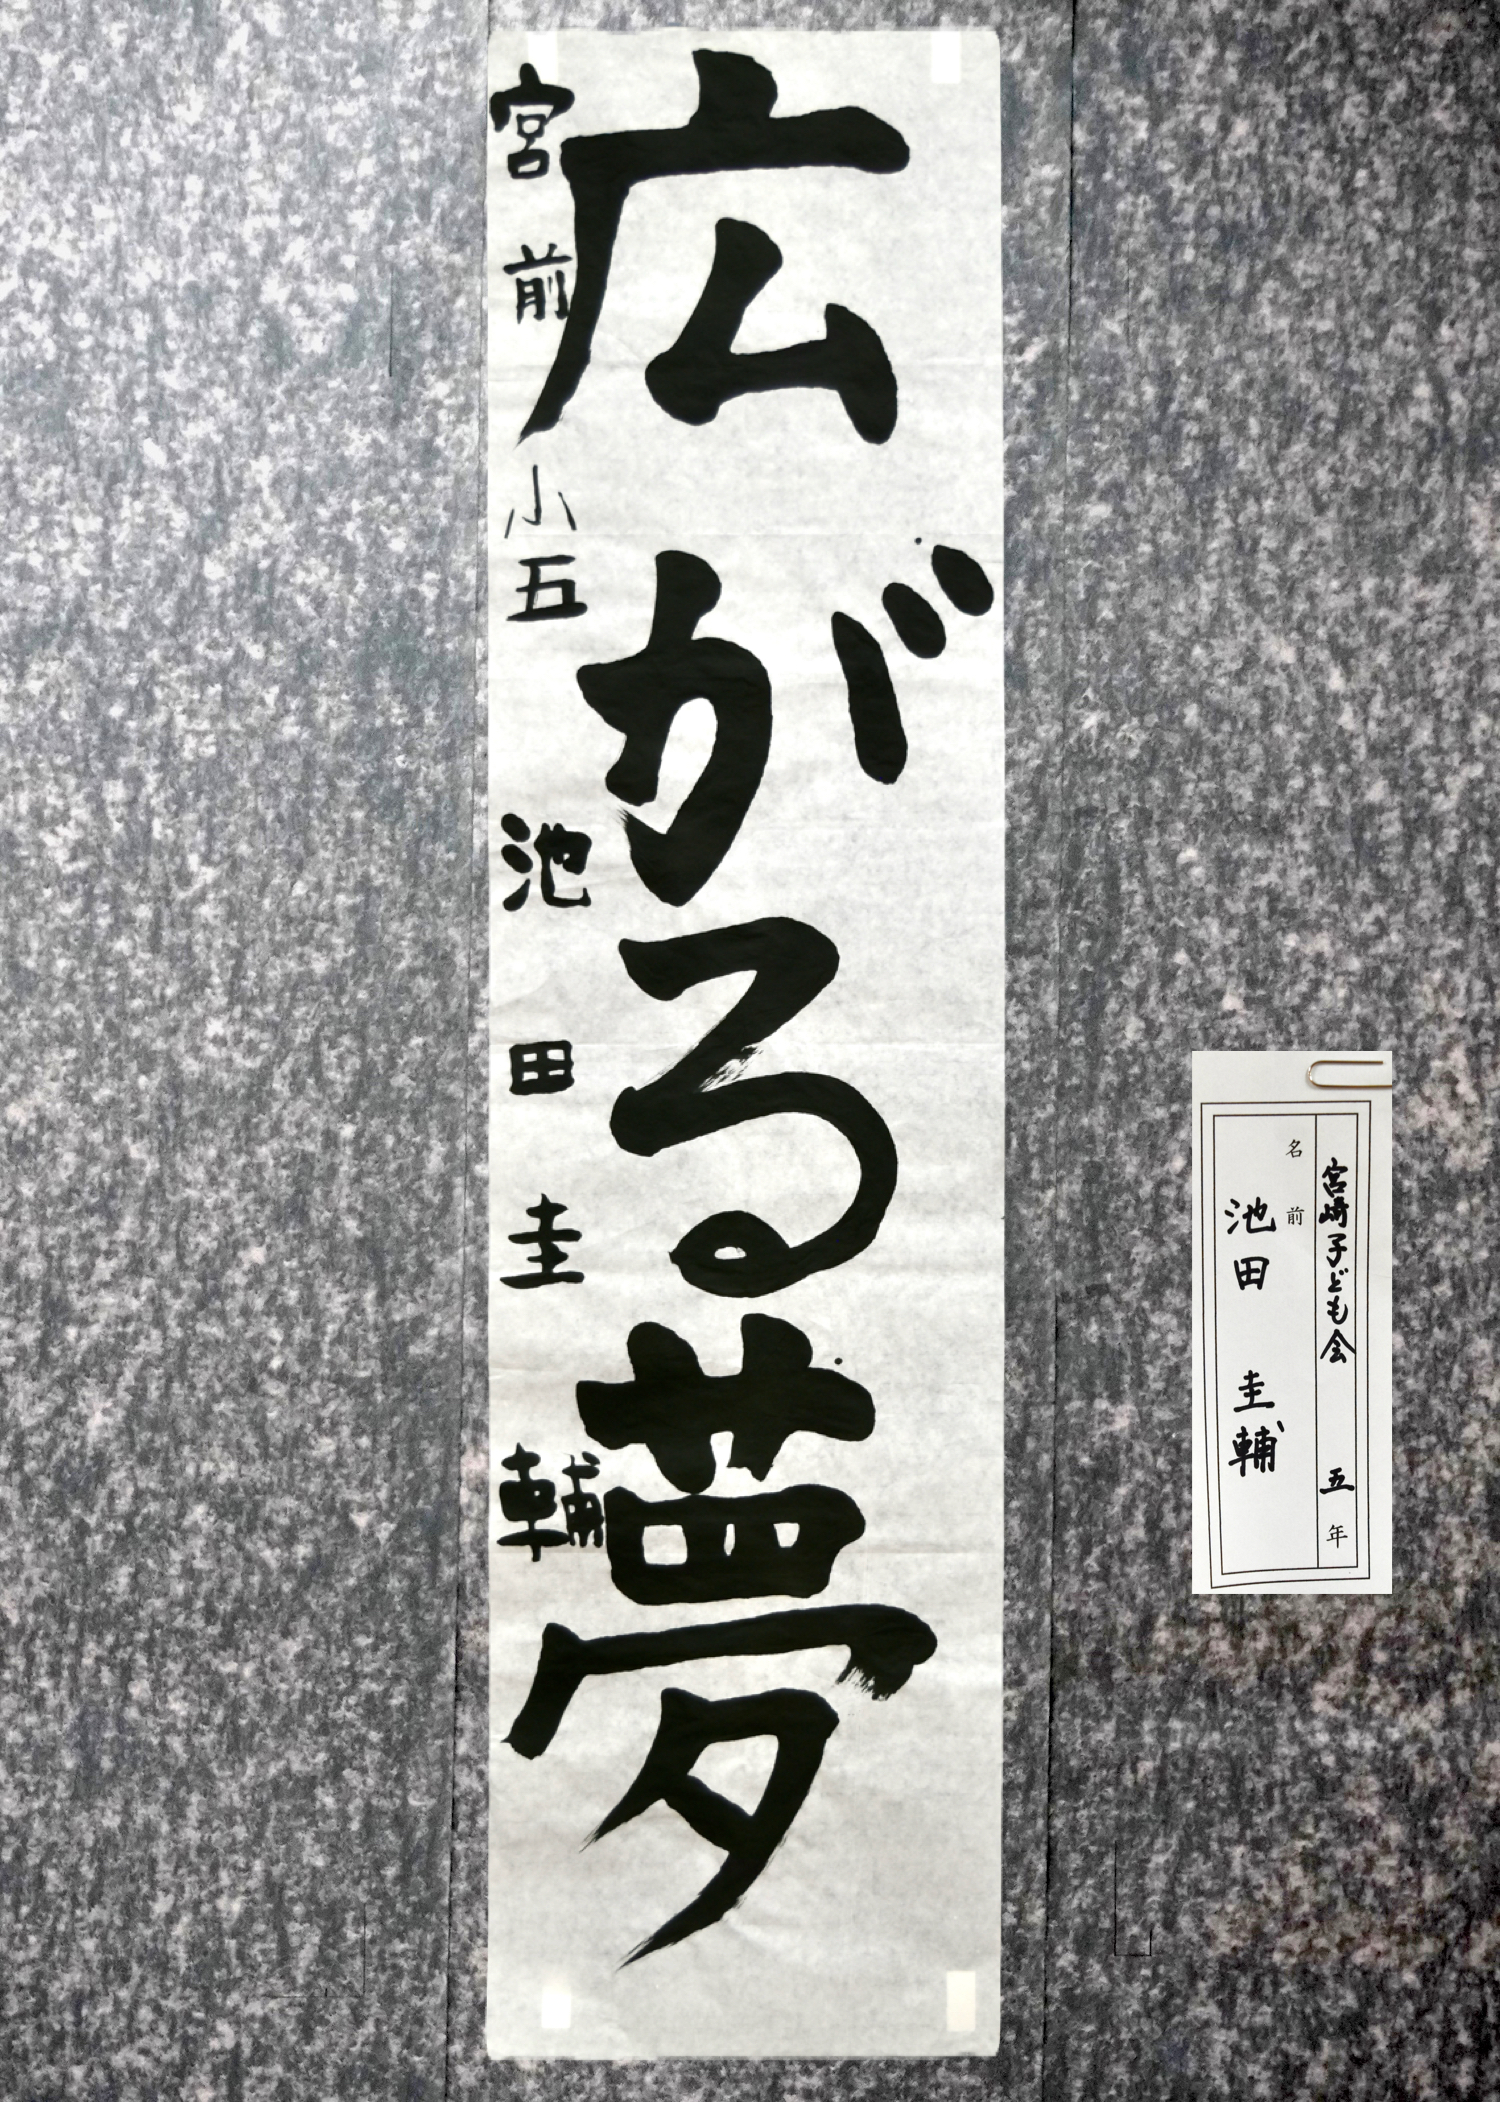 広がる夢
宮前小五 池田圭輔
宮崎子ども会 五年
名前
池田 圭輔